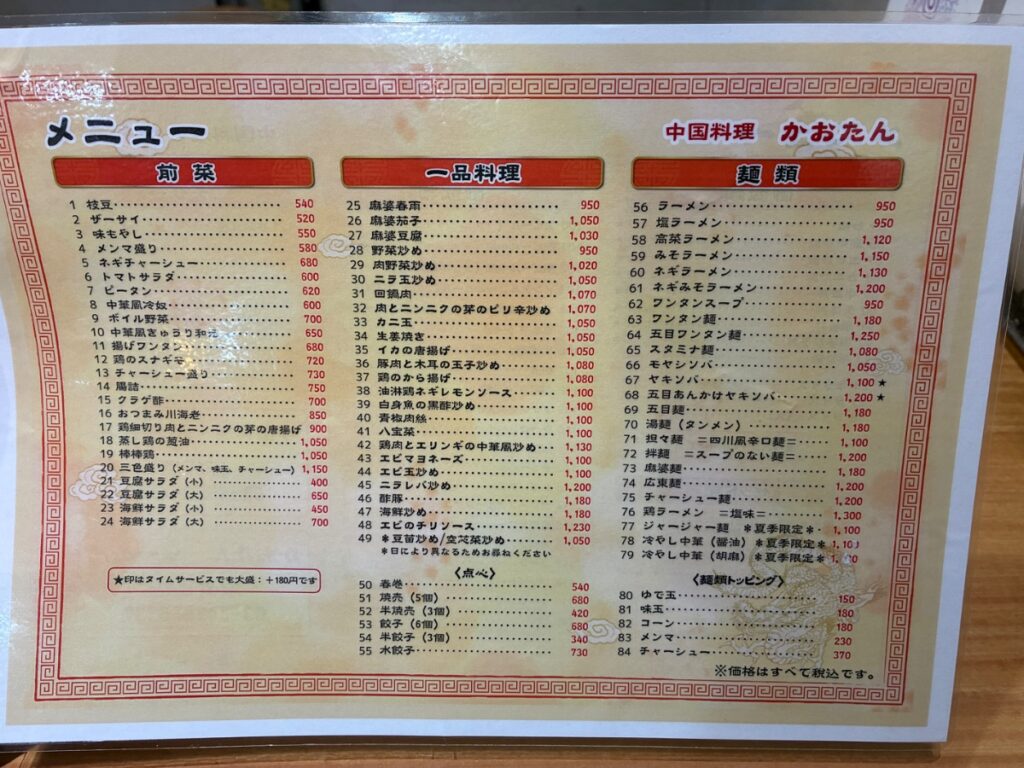 メニュー
中国料理 かおたん
前菜
1 枝豆 540
2 ザーサイ 520
3 味もやし 550
4 メンマ盛り 580
5 ネギチャーシュー 680
6 トマトサラダ 600
7 ピータン 620
8 中華風冷奴 600
9 ボイル野菜 700
10 中華風きゅうり和え 650
11 揚げワンタン 680
12 鶏のスナギモ 720
13 チャーシュー盛り 730
14 腸詰 750
15 クラゲ酢 700
16 おつまみ川海老 850
17 鶏細切り肉とニンニクの芽の唐揚げ 900
18 蒸し鶏の葱油 1,050
19 棒棒鶏 1,050
20 三色盛り (メンマ、味玉、チャーシュー) 1,150
21 豆腐サラダ (小) 400
22 豆腐サラダ (大) 650
23 海鮮サラダ (小) 450
24 海鮮サラダ (大) 700
★印はタイムサービスでも大盛:+180円です
一品料理
25 麻婆春雨 950
26 麻婆茄子 1,050
27 麻婆豆腐 1,030
28 野菜炒め 950
29 肉野菜炒め 1,020
30 ニラ玉炒め 1,050
31 回鍋肉 1,070
32 肉とニンニクの芽のピリ辛炒め 1,070
33 カニ玉 1,050
34 生姜焼き 1,050
35 イカの唐揚げ 1,050
36 豚肉と木耳の玉子炒め 1,080
37 鶏のから揚げ 1,080
38 油淋鶏ネギレモンソース 1,100
39 白身魚の黒酢炒め 1,100
40 青椒肉絲 1,100
41 八宝菜 1,100
42 鶏肉とエリンギの中華風炒め 1,130
43 エビマヨネーズ 1,100
44 エビ玉炒め 1,100
45 ニラレバ炒め 1,200
46 酢豚 1,180
47 海鮮炒め 1,180
48 エビのチリソース 1,230
49 *豆苗炒め/空芯菜炒め 1,050
*日により異なるためお尋ねください
〈点心〉
50 春巻 540
51 焼売 (5個) 680
52 半焼売 (3個) 420
53 餃子 (6個) 680
54 半餃子 (3個) 340
55 水餃子 730
麺類
56 ラーメン 950
57 塩ラーメン 950
58 高菜ラーメン 1,120
59 みそラーメン 1,150
60 ネギラーメン 1,130
61 ネギみそラーメン 1,200
62 ワンタンスープ 950
63 ワンタン麺 1,180
64 五目ワンタン麺 1,250
65 スタミナ麺 1,080
66 モヤシソバ 1,050
67 ヤキソバ 1,100 ★
68 五目あんかけヤキソバ 1,200 ★
69 五目麺 1,180
70 湯麺 (タンメン) 1,180
71 担々麺 =四川風辛口麺= 1,100
72 拌麺 =スープのない麺= 1,200
73 麻婆麺 1,180
74 広東麺 1,200
75 チャーシュー麺 1,200
76 鶏ラーメン =塩味= 1,300
77 ジャージャー麺 *夏季限定* 1,100
78 冷やし中華 (醤油) *夏季限定*
79 冷やし中華 (胡麻) *夏季限定*
〈麺類トッピング〉
80 ゆで玉 150
81 味玉 180
82 コーン 180
83 メンマ 230
84 チャーシュー 370
※価格はすべて税込です。